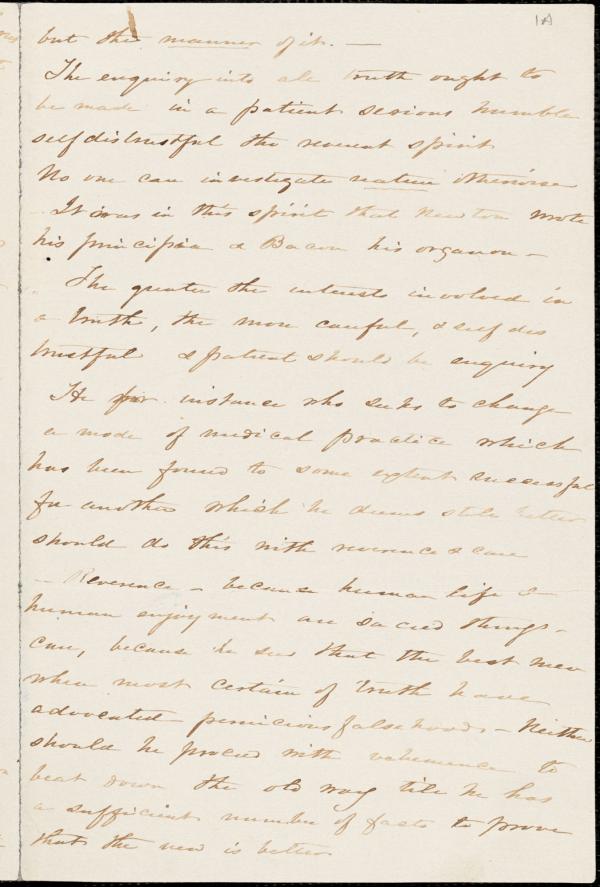 1A
but the manner of it. —
The enquiry into all truth ought to
be made in a patient serious humble
self distrustful tho reverent spirit
No one can investigate nature otherwise
It was in this spirit that Newton wrote
his principia & Bacon his organon —
The greater the interests involved in
a truth, the more careful, & self dis
trustful & patient should be enquiry
He for instance who seeks to change
a mode of medical practice which
has been found to some extent successful
for another which he deems still better
should do this with reverence & care
— Reverence — because human life &
human enjoyment are sacred things —
care, because he sees that the best men
when most certain of truth have
advocated pernicious falsehoods — Neither
should he proceed with vehemence to
beat down the old way till he has
a sufficient number of facts to prove
that the new is better